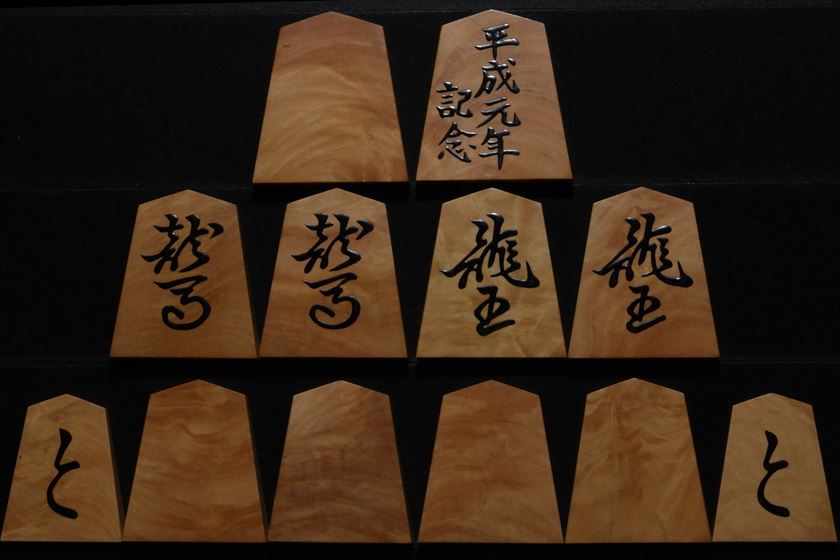 平成元年
記念
龍馬
龍馬
龍王
龍王
と
と